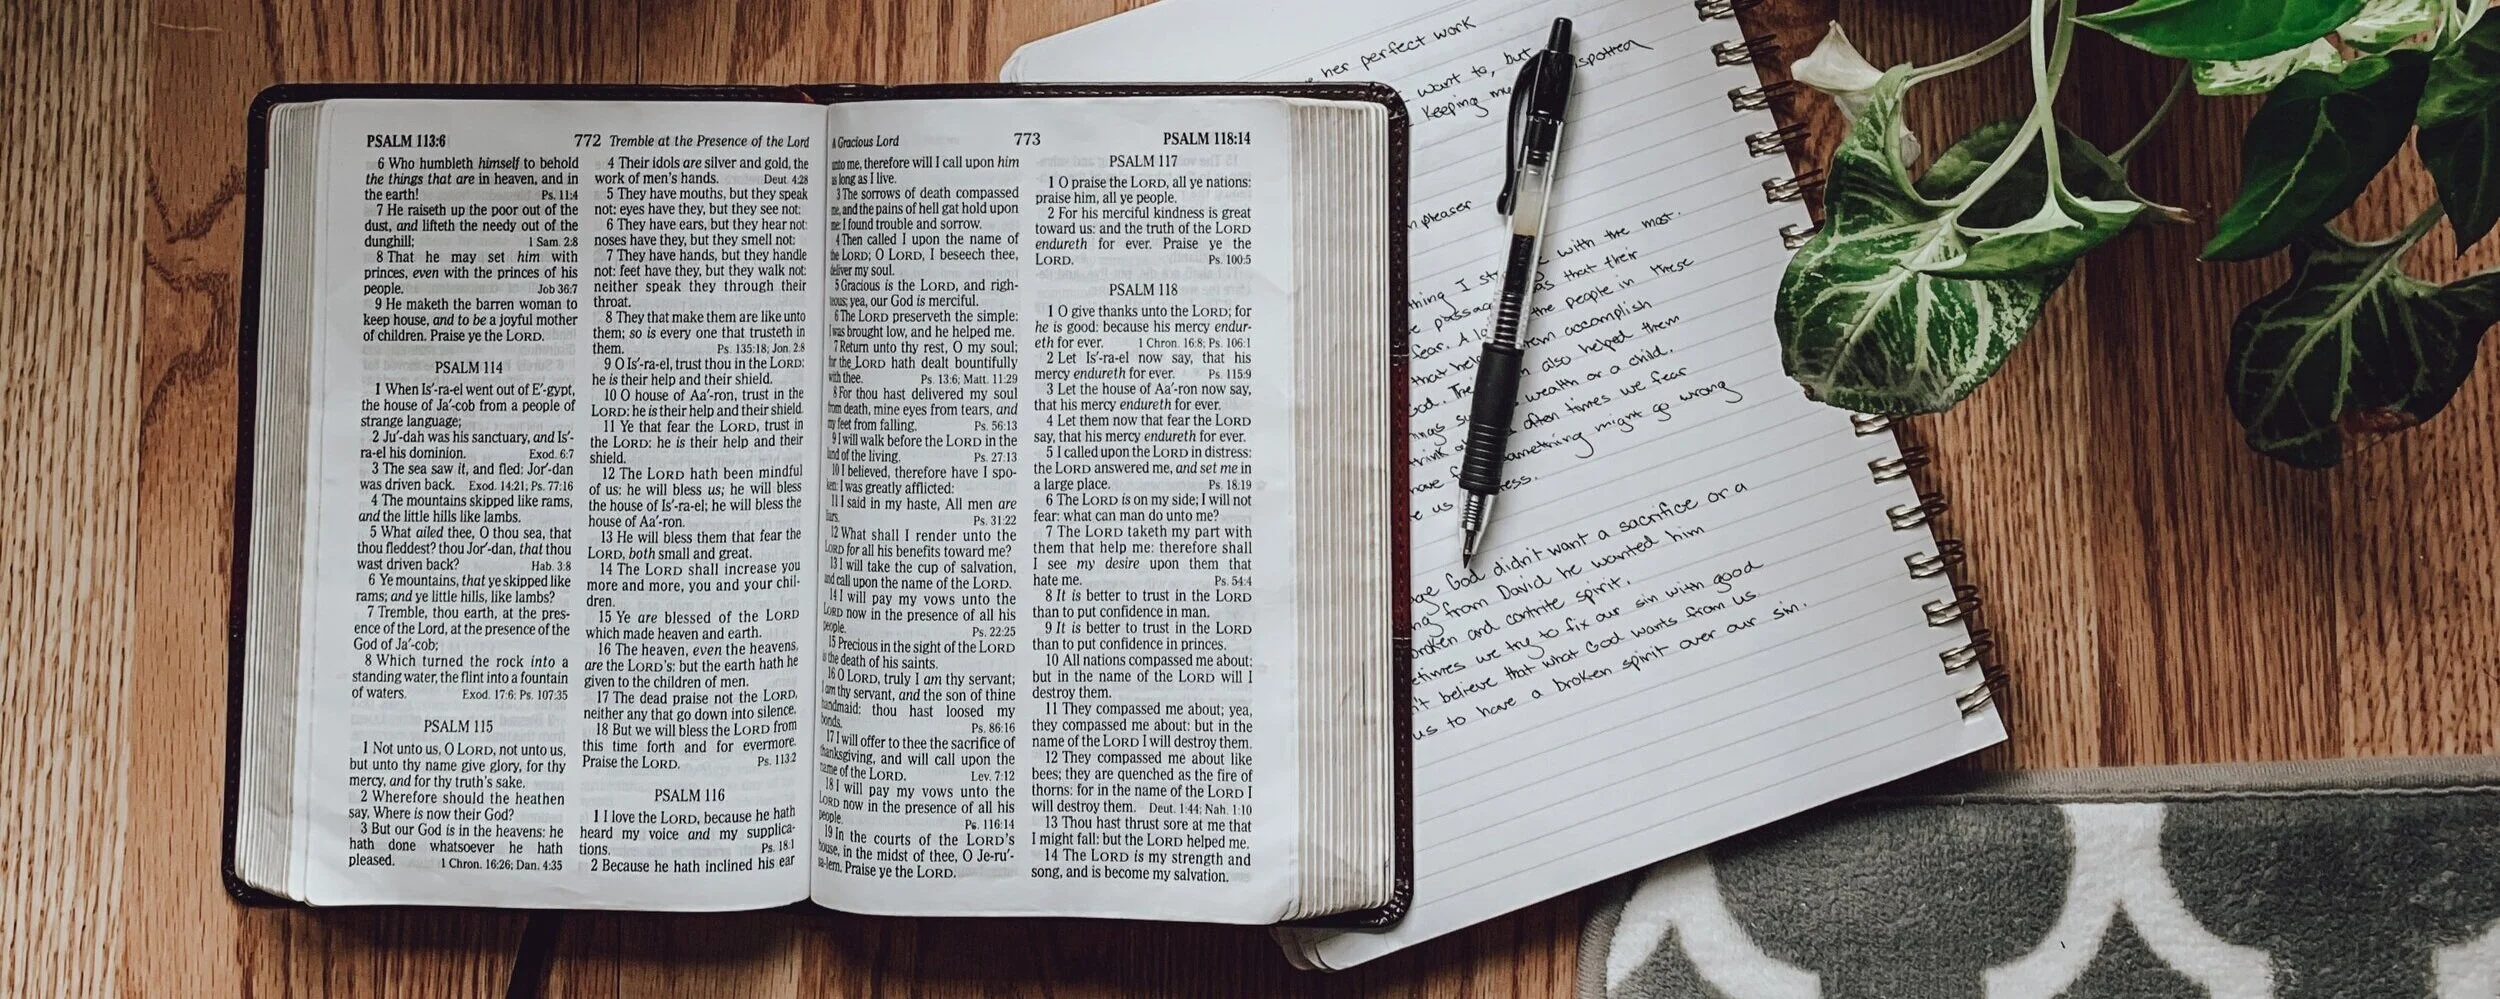 PSALM 113:6 772 Tremble at the Presence of the Lord
6 Who humbleth himself to behold
the things that are in heaven, and in
the earth! Ps. 11:4
7 He raiseth up the poor out of the
dust, and lifteth the needy out of the
dunghill; 1 Sam. 2:8
8 That he may set him with
princes, even with the princes of his
people. Job 36:7
9 He maketh the barren woman to
keep house, and to be a joyful mother
of children. Praise ye the LORD.
PSALM 114
1 When Is'-ra-el went out of E'-gypt,
the house of Ja'-cob from a people of
strange language;
2 Ju'-dah was his sanctuary, and Is'-
ra-el his dominion. Exod. 6:7
3 The sea saw it, and fled: Jor'-dan
was driven back. Exod. 14:21; Ps. 77:16
4 The mountains skipped like rams,
and the little hills like lambs.
5 What ailed thee, O thou sea, that
thou fleddest? thou Jor'-dan, that thou
wast driven back? Hab. 3:8
6 Ye mountains, that ye skipped like
rams; and ye little hills, like lambs?
7 Tremble, thou earth, at the pres-
ence of the Lord, at the presence of the
God of Ja'-cob;
8 Which turned the rock into a
standing water, the flint into a fountain
of waters. Exod. 17:6; Ps. 107:35
PSALM 115
1 Not unto us, O LORD, not unto us,
but unto thy name give glory, for thy
mercy, and for thy truth's sake.
2 Wherefore should the heathen
say, Where is now their God?
3 But our God is in the heavens: he
hath done whatsoever he hath
pleased. 1 Chron. 16:26; Dan. 4:35
4 Their idols are silver and gold, the
work of men's hands. Deut. 4:28
5 They have mouths, but they speak
not: eyes have they, but they see not:
6 They have ears, but they hear not:
noses have they, but they smell not:
7 They have hands, but they handle
not: feet have they, but they walk not:
neither speak they through their
throat.
8 They that make them are like unto
them; so is every one that trusteth in
them. Ps. 135:18; Jon. 2:8
9 O Is'-ra-el, trust thou in the LORD:
he is their help and their shield.
10 O house of Aa'-ron, trust in the
LORD: he is their help and their shield.
11 Ye that fear the LORD, trust in
the LORD: he is their help and their
shield.
12 The LORD hath been mindful
of us: he will bless us; he will bless
the house of Is'-ra-el; he will bless the
house of Aa'-ron.
13 He will bless them that fear the
LORD, both small and great.
14 The LORD shall increase you
more and more, you and your chil-
dren.
15 Ye are blessed of the LORD
which made heaven and earth.
16 The heaven, even the heavens,
are the LORD's: but the earth hath he
given to the children of men.
17 The dead praise not the LORD,
neither any that go down into silence.
18 But we will bless the LORD from
this time forth and for evermore.
Praise the LORD. Ps. 113:2
PSALM 116
1 I love the LORD, because he hath
heard my voice and my supplica-
tions. Ps. 18:1
2 Because he hath inclined his ear
A Gracious Lord 773 PSALM 118:14
unto me, therefore will I call upon him
as long as I live.
3 The sorrows of death compassed
me, and the pains of hell gat hold upon
me: I found trouble and sorrow.
4 Then called I upon the name of
the LORD; O LORD, I beseech thee,
deliver my soul.
5 Gracious is the LORD, and right-
eous; yea, our God is merciful.
6 The LORD preserveth the simple:
I was brought low, and he helped me.
7 Return unto thy rest, O my soul;
for the LORD hath dealt bountifully
with thee. Ps. 13:6; Matt. 11:29
8 For thou hast delivered my soul
from death, mine eyes from tears, and
my feet from falling. Ps. 56:13
9 I will walk before the LORD in the
land of the living. Ps. 27:13
10 I believed, therefore have I spo-
ken: I was greatly afflicted:
11 I said in my haste, All men are
liars. Ps. 31:22
12 What shall I render unto the
LORD for all his benefits toward me?
13 I will take the cup of salvation,
and call upon the name of the LORD.
14 I will pay my vows unto the
LORD now in the presence of all his
people. Ps. 22:25
15 Precious in the sight of the LORD
is the death of his saints.
16 O LORD, truly I am thy servant;
I am thy servant, and the son of thine
handmaid: thou hast loosed my
bonds. Ps. 86:16
17 I will offer to thee the sacrifice of
thanksgiving, and will call upon the
name of the LORD. Lev. 7:12
18 I will pay my vows unto the
LORD now in the presence of all his
people. Ps. 116:14
19 In the courts of the LORD's
house, in the midst of thee, O Je-ru'-
sa-lem. Praise ye the LORD.
PSALM 117
1 O praise the LORD, all ye nations:
praise him, all ye people.
2 For his merciful kindness is great
toward us: and the truth of the LORD
endureth for ever. Praise ye the
LORD. Ps. 100:5
PSALM 118
1 O give thanks unto the LORD; for
he is good: because his mercy endur-
eth for ever. 1 Chron. 16:8; Ps. 106:1
2 Let Is'-ra-el now say, that his
mercy endureth for ever. Ps. 115:9
3 Let the house of Aa'-ron now say,
that his mercy endureth for ever.
4 Let them now that fear the LORD
say, that his mercy endureth for ever.
5 I called upon the LORD in distress:
the LORD answered me, and set me in
a large place. Ps. 18:19
6 The LORD is on my side; I will not
fear: what can man do unto me?
7 The LORD taketh my part with
them that help me: therefore shall
I see my desire upon them that
hate me. Ps. 54:4
8 It is better to trust in the LORD
than to put confidence in man.
9 It is better to trust in the LORD
than to put confidence in princes.
10 All nations compassed me about:
but in the name of the LORD will I
destroy them.
11 They compassed me about; yea,
they compassed me about: but in the
name of the LORD I will destroy them.
12 They compassed me about like
bees; they are quenched as the fire of
thorns: for in the name of the LORD I
will destroy them. Deut. 1:44; Nah. 1:10
13 Thou hast thrust sore at me that
I might fall: but the LORD helped me.
14 The LORD is my strength and
song, and is become my salvation.
her perfect work
want to, but
Keeping my spotted
pleaser
thing I with the most.
as that their
fear. A the people in
that accomplish
God. also helped them
wealth or a child.
think often times we fear
have something might go wrong
us
God didn't want a sacrifice or a
from David he wanted him
broken and contrite spirit.
we try to fix our sin with good
believe that what God wants from us
us to have a broken spirit over our sin.